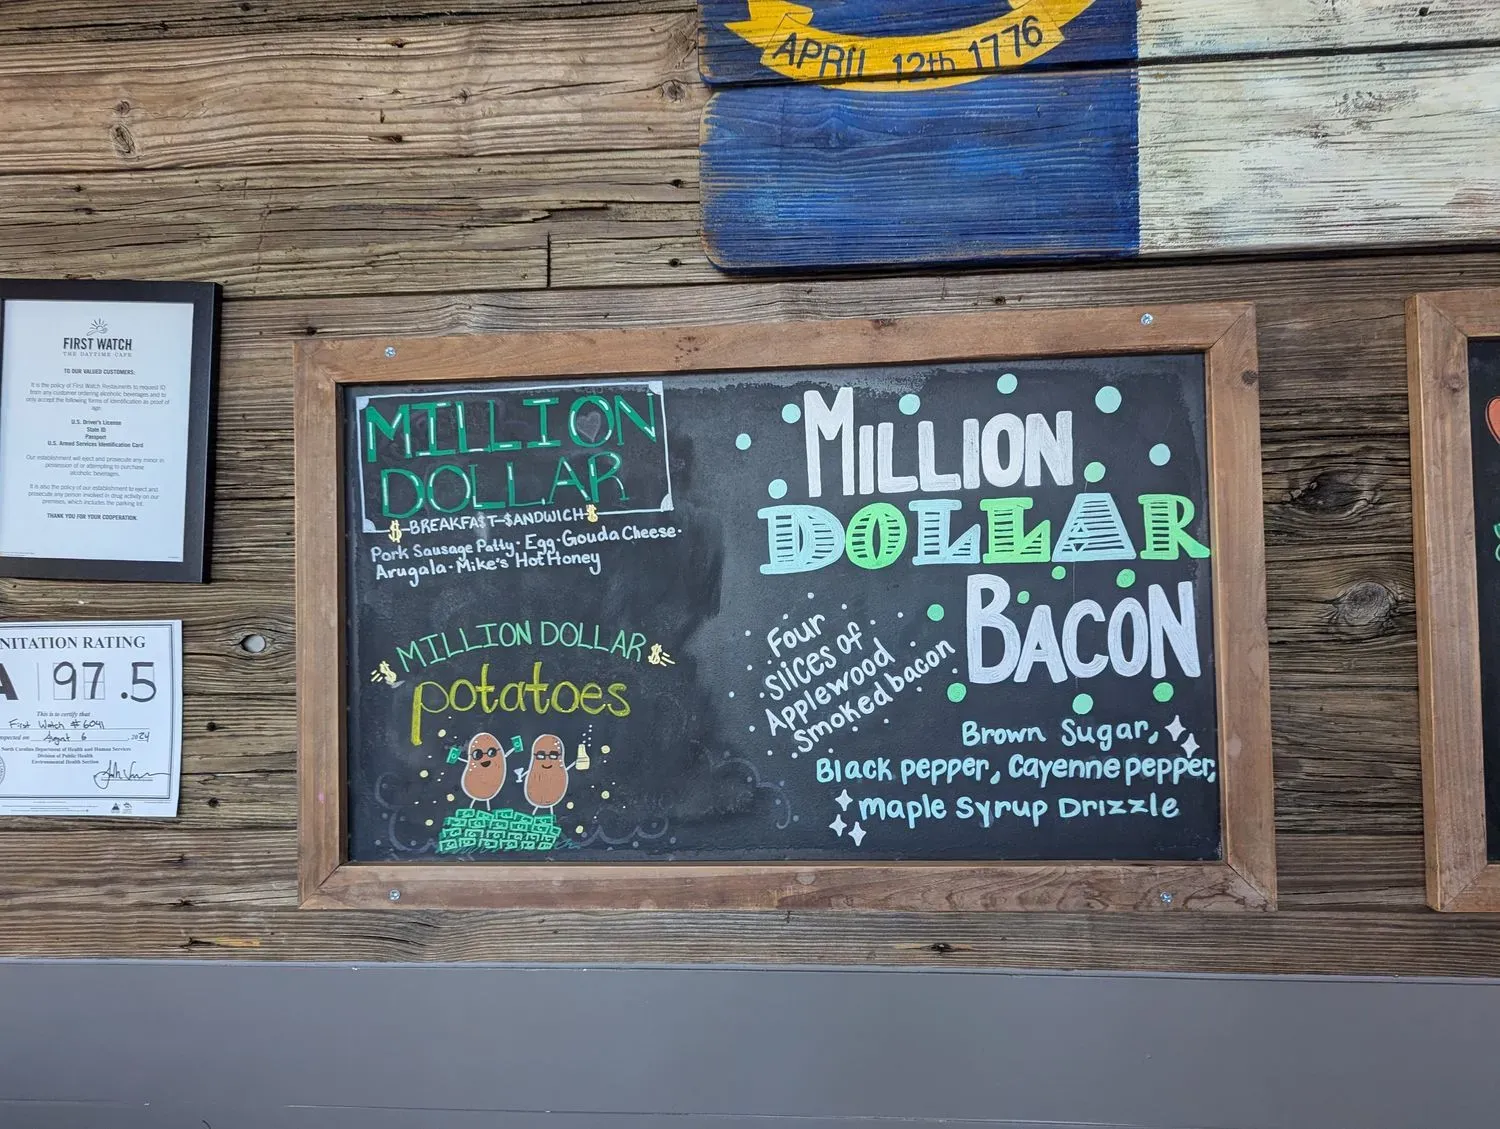 APRIL 12th 1776
FIRST WATCH
THE DAYTIME CAFE
TO OUR VALUED CUSTOMERS:
It is the policy of First Watch Restaurants to request ID
from any customer ordering alcoholic beverages and to
only accept the following forms of identification as proof of
age:
U.S. Driver's License
State ID
Passport
U.S. Armed Services Identification Card
Our establishment will eject and prosecute any minor in
possession of or attempting to purchase
alcoholic beverages.
It is also the policy of our establishment to eject and
prosecute any person involved in drug activity on our
premises, which includes the parking lot.
THANK YOU FOR YOUR COOPERATION.
NITATION RATING
A 97.5
This is to certify that
First Watch # 6041
spected on August 6, 2024
North Carolina Department of Health and Human Services
Division of Public Health
Environmental Health Section
MILLION
DOLLAR
$ BREAKFAST SANDWICH $
Pork Sausage Patty · Egg · Gouda Cheese ·
Arugala · Mike's Hot Honey
MILLION DOLLAR
$ $
potatoes
MILLION
DOLLAR
BACON
Four
slices of
Applewood
smoked bacon
Brown Sugar,
Black pepper, Cayenne pepper,
maple Syrup Drizzle